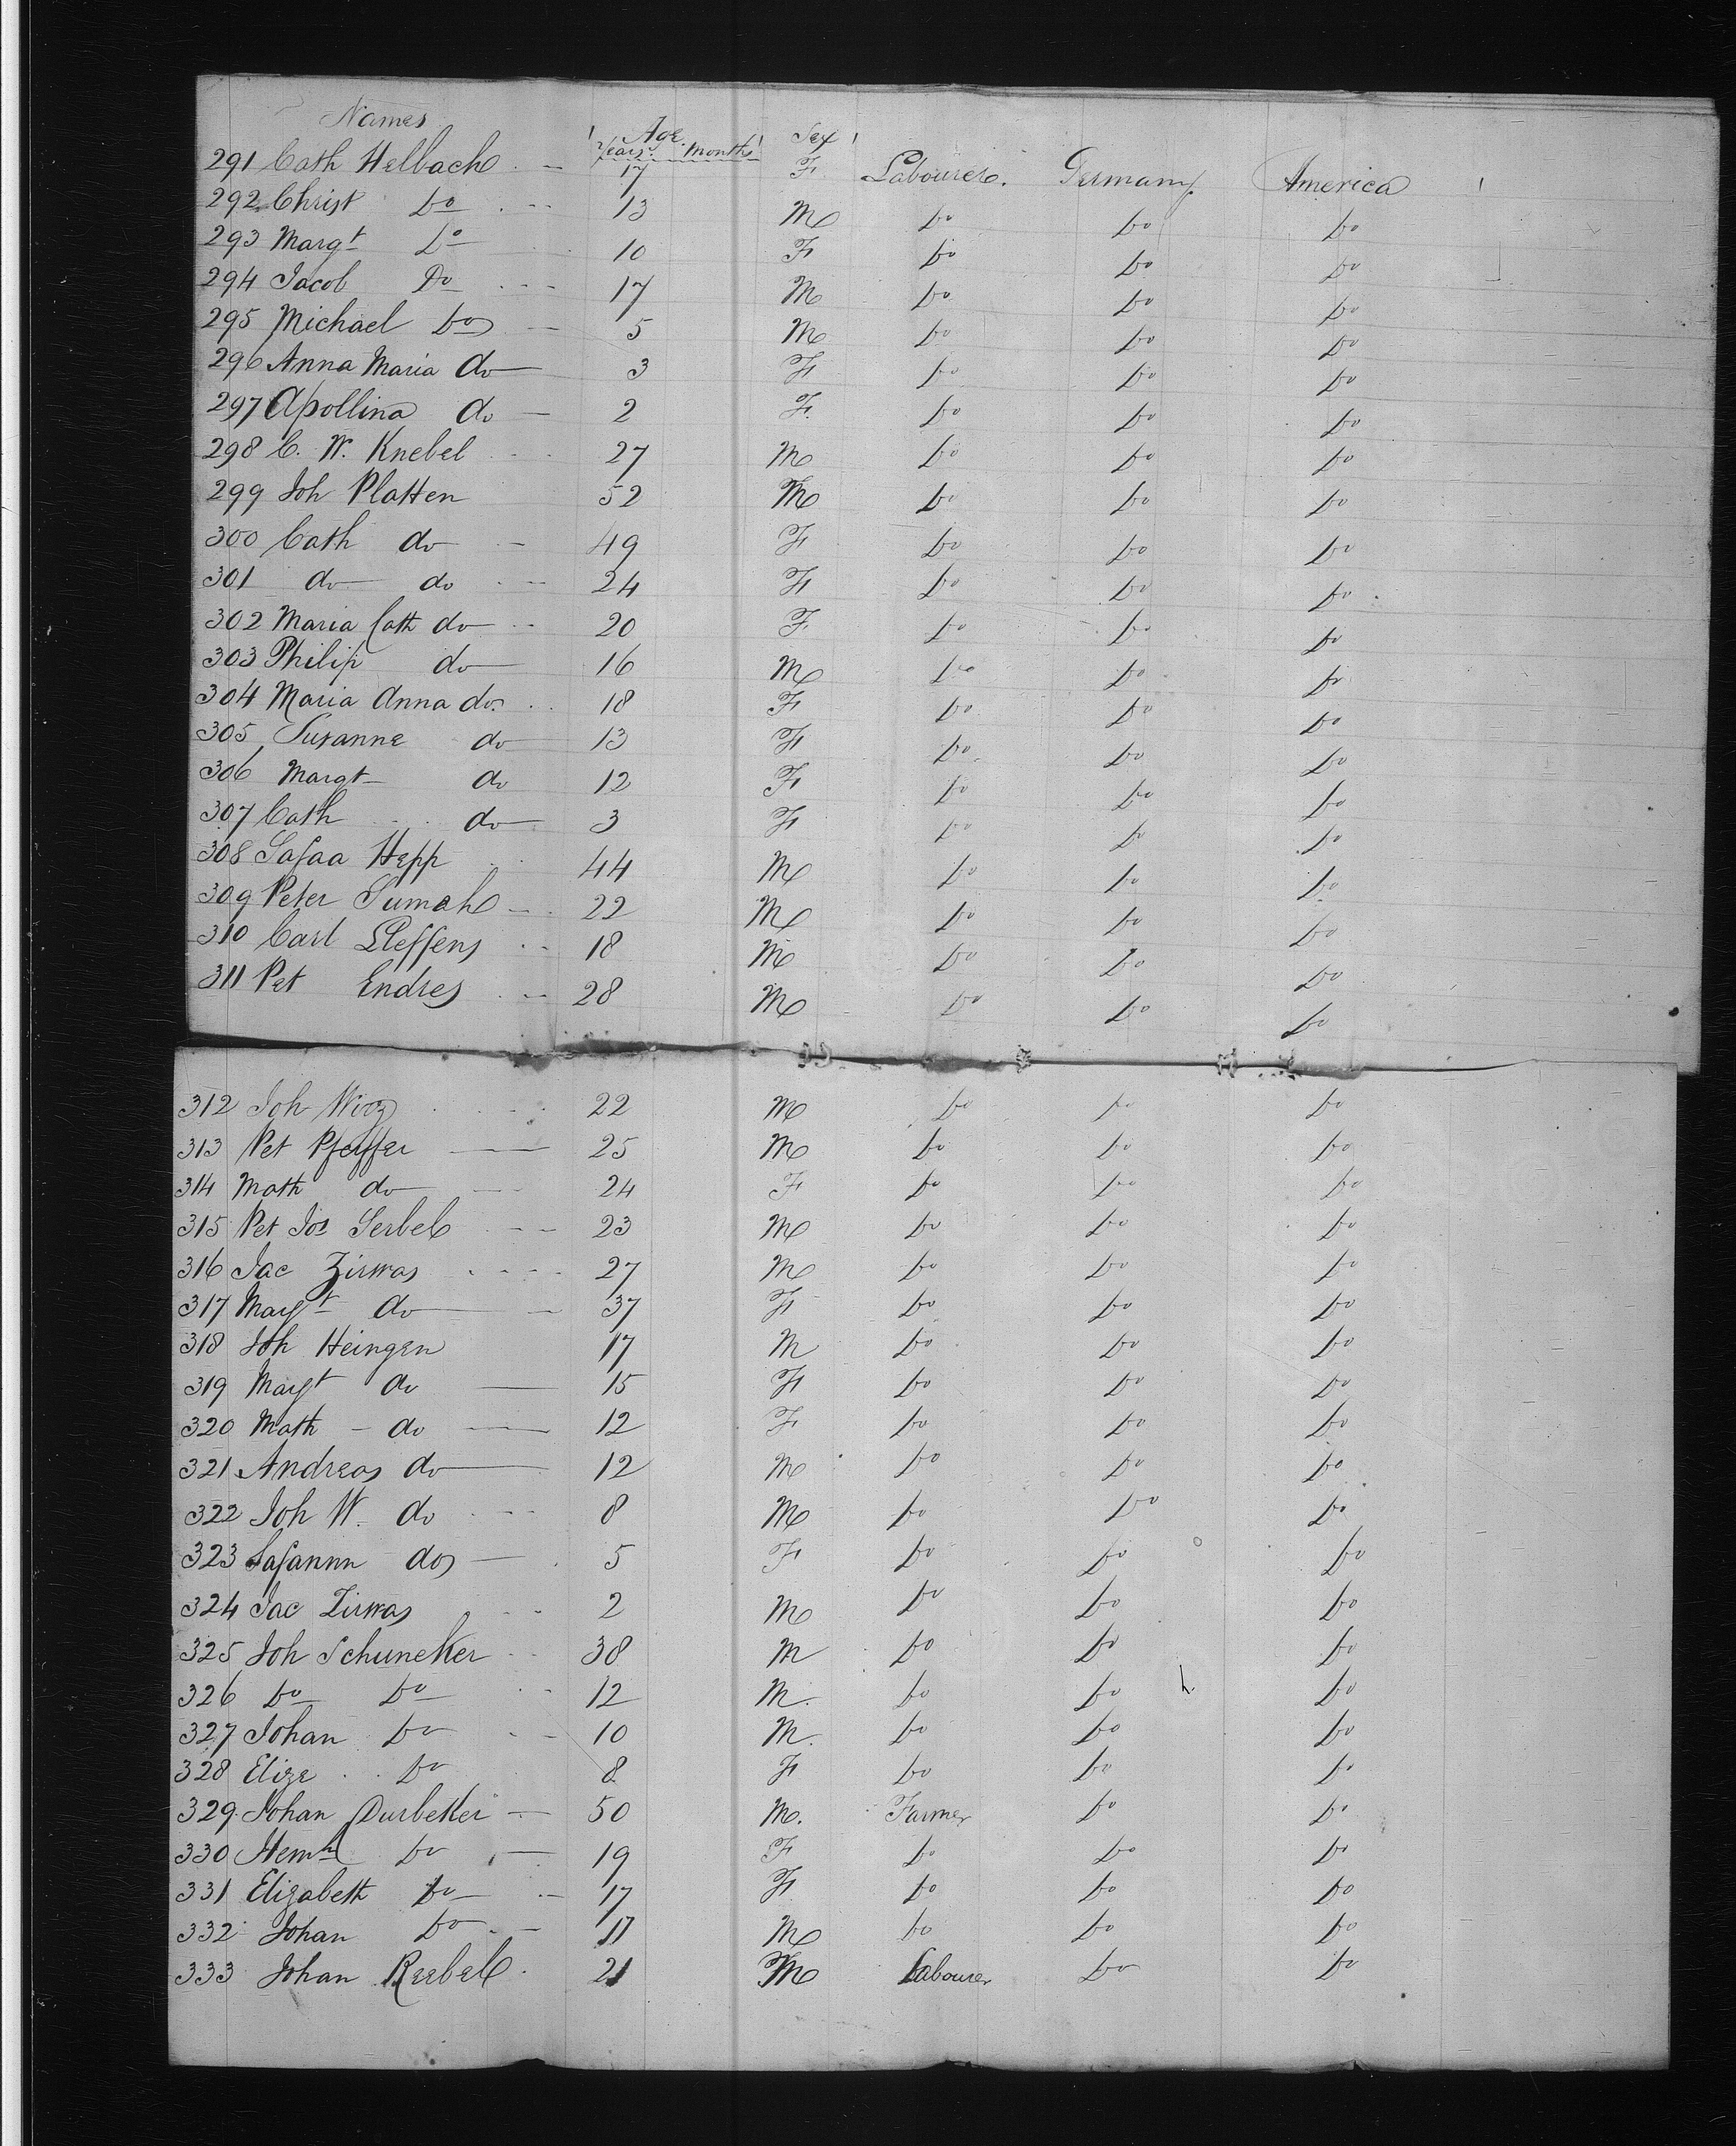 Names Age Sex
Years Months
291 Cath Helbach 17 F Labourer. Germany. America
292 Christ Do 13 M Do Do Do
293 Margt Do 10 F Do Do Do
294 Jacob Do 17 M Do Do Do
295 Michael Do 5 M Do Do Do
296 Anna Maria do 3 F Do Do Do
297 Apollina do 2 F. Do Do Do
298 C. W. Knebel 27 M Do Do Do
299 Joh Platten 52 M Do Do Do
300 Cath do 49 F Do Do Do
301 do do 24 F Do Do Do
302 Maria Cath do 20 F Do Do Do
303 Philip do 16 M Do Do Do
304 Maria Anna do. 18 F Do Do Do
305 Susanne do 13 F Do Do Do
306 Margt do 12 F Do Do Do
307 Cath do 3 F Do Do Do
308 Hepp 44 M Do Do Do
309 Peter Sumah 22 M Do Do Do
310 Carl Steffens 18 M Do Do Do
311 Pet Endres 28 M Do Do Do
312 Joh 22 M Do Do Do
313 Pet Pfeiffer 25 M Do Do Do
314 Math do 24 F Do Do Do
315 Pet Jos Serbel 23 M Do Do Do
316 Jac Zirwas 27 M Do Do Do
317 Margt do 37 F Do Do Do
318 Joh Heingen 17 M Do Do Do
319 Margt do 15 F Do Do Do
320 Math - do 12 F Do Do Do
321 Andreas do 12 M Do Do Do
322 Joh W. do 8 M Do Do Do
323 Safannn do 5 F Do Do Do
324 Jac Zirwas 2 M Do Do Do
325 Joh Schuneker 38 M Do Do Do
326 Do Do 12 M. Do Do Do
327 Johan Do 10 M. Do Do Do
328 Elize Do 8 F Do Do Do
329 Johan Durbeker 50 M. Farmer Do Do
330 Do 19 F Do Do Do
331 Elizabeth Do 17 F Do Do Do
332 Johan Do 11 M Do Do Do
333 Johan Reebel 21 M Labourer Do Do